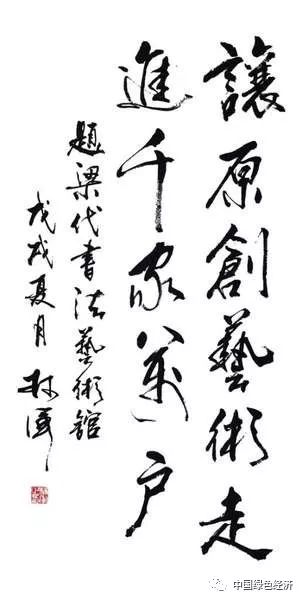 讓原創藝術走
進千家万户
題梁代書法藝術館
戊戌夏月
中国绿色经济